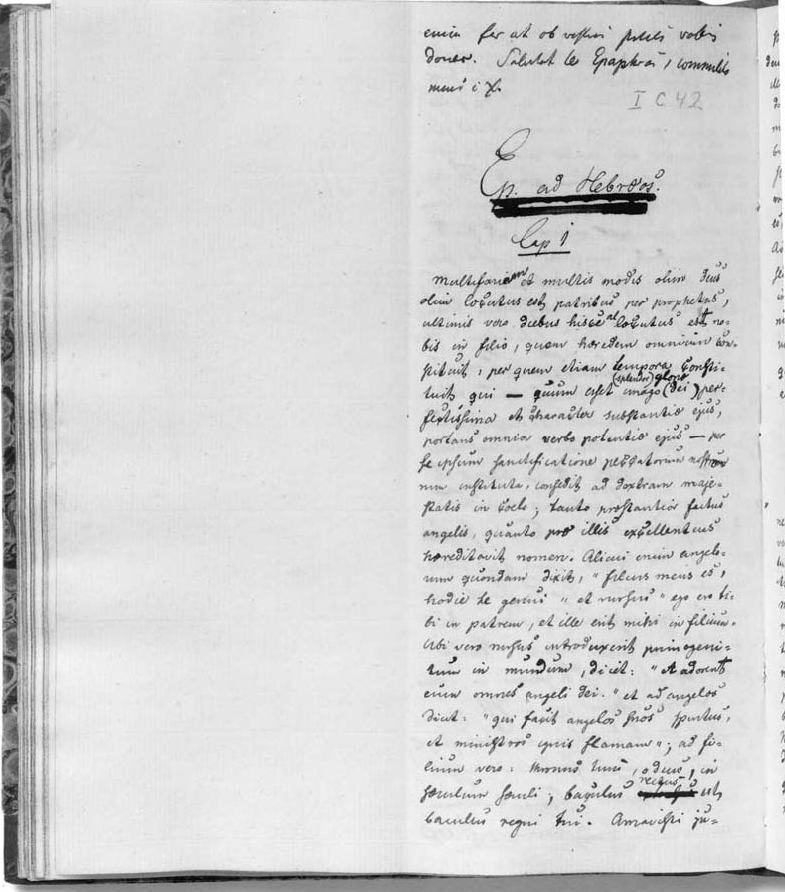 enim fer ut ob vestras preces vobis
doner. Salutat te Epaphras, commilito
meus i X.
I C 42
Ep. ad Hebræos.
Cap 1
Multifariam et multis modis olim deus
olim locutus est patribus per prophetas,
ultimis vero diebus hisce locutus est no-
bis in filio, quem hæredem omnium con-
stituit, per quem etiam tempora consti-
(splendor) gloriæ
tuit, qui — quum esset imago (dei) per-
fectissima et character substantiæ ejus,
portans omnia verbo potentiæ ejus — per
se ipsum sanctificatione peccatorum
instituta, consedit ad dextram maje-
statis in coelo; tanto præstantior factus
angelis, quanto præ illis excellentius
hæreditavit nomen. Alicui enim angelo-
rum quondam dixit, "filius meus es,
hodie te genui" et rursus "ego ero ti-
bi in patrem, et ille erit mihi in filium.
Ubi vero rursus introduxerit primogeni-
tum in mundum, dicit: "Et adorent
eum omnes angeli dei." et ad angelos
dicit: "qui facit angelos suos spiritus,
et ministros ignis flamam"; ad fi-
lium vero: thronus tuus, o deus, in
rectus
sæculum sæculi; baculus est
baculus regni tui. Amavisti ju-